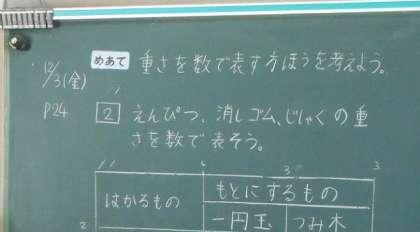 めあて 重さを数で表す方ほうを考えよう。
12/3(金)
P24 2 えんぴつ、消しゴム、じしゃくの重
さを数で表そう。
はかるもの もとにするもの
一円玉 つみ木